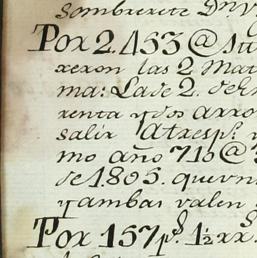 Sombrerete Dn. V
Por 2.453 @ Su
xeron las 2. Mat
ma: La de 2. de
renta y dos arro
salir A tres ps.
mo año 715 @
de 1.805. que vn
y ambas valen
Por 157 ps. 1½ xx.